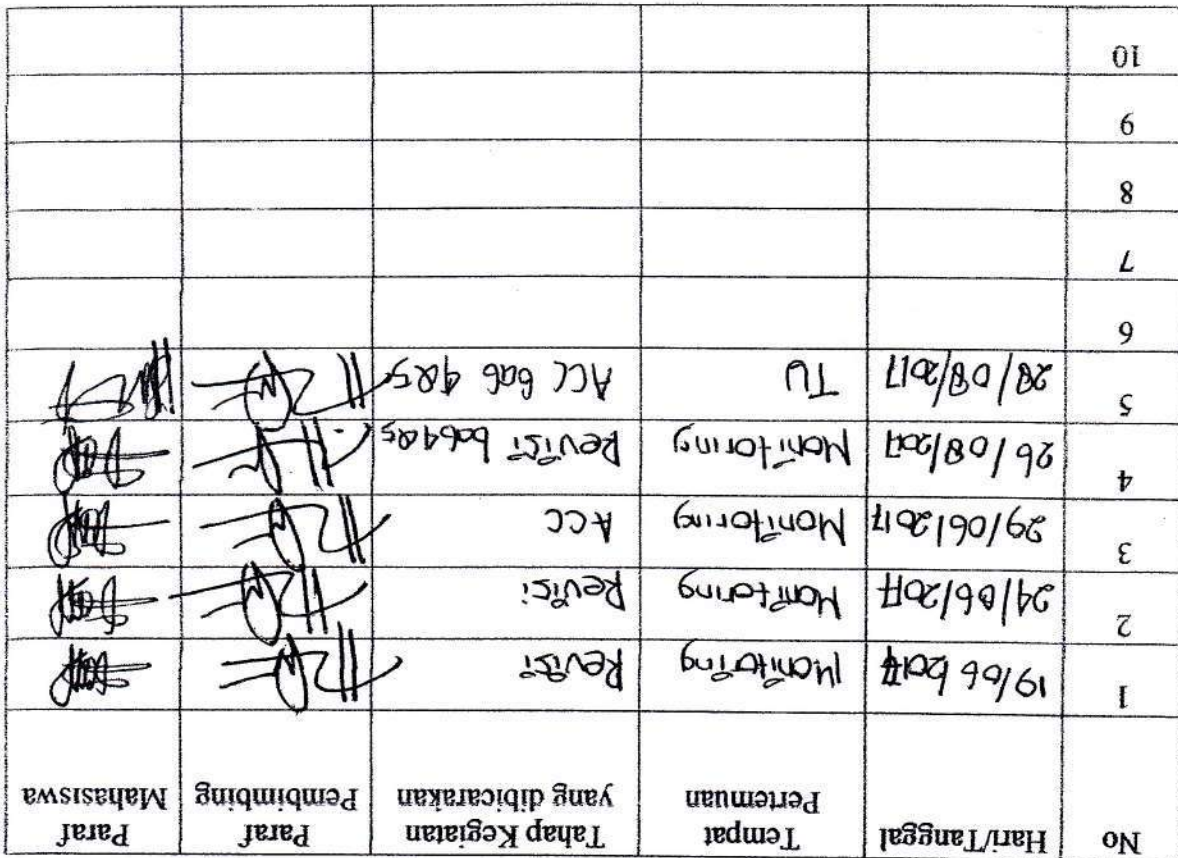 No Hari/Tanggal Tempat Pertemuan Tahap Kegiatan yang dibicarakan Paraf Pembimbing Paraf Mahasiswa
1 19/06/2017 Monitoring Revisi
2 24/06/2017 Monitoring Revisi
3 29/06/2017 Monitoring ACC
4 26/08/2017 Monitoring Revisi bab 4&5
5 28/08/2017 TU ACC Bab 4&5
6
7
8
9
10